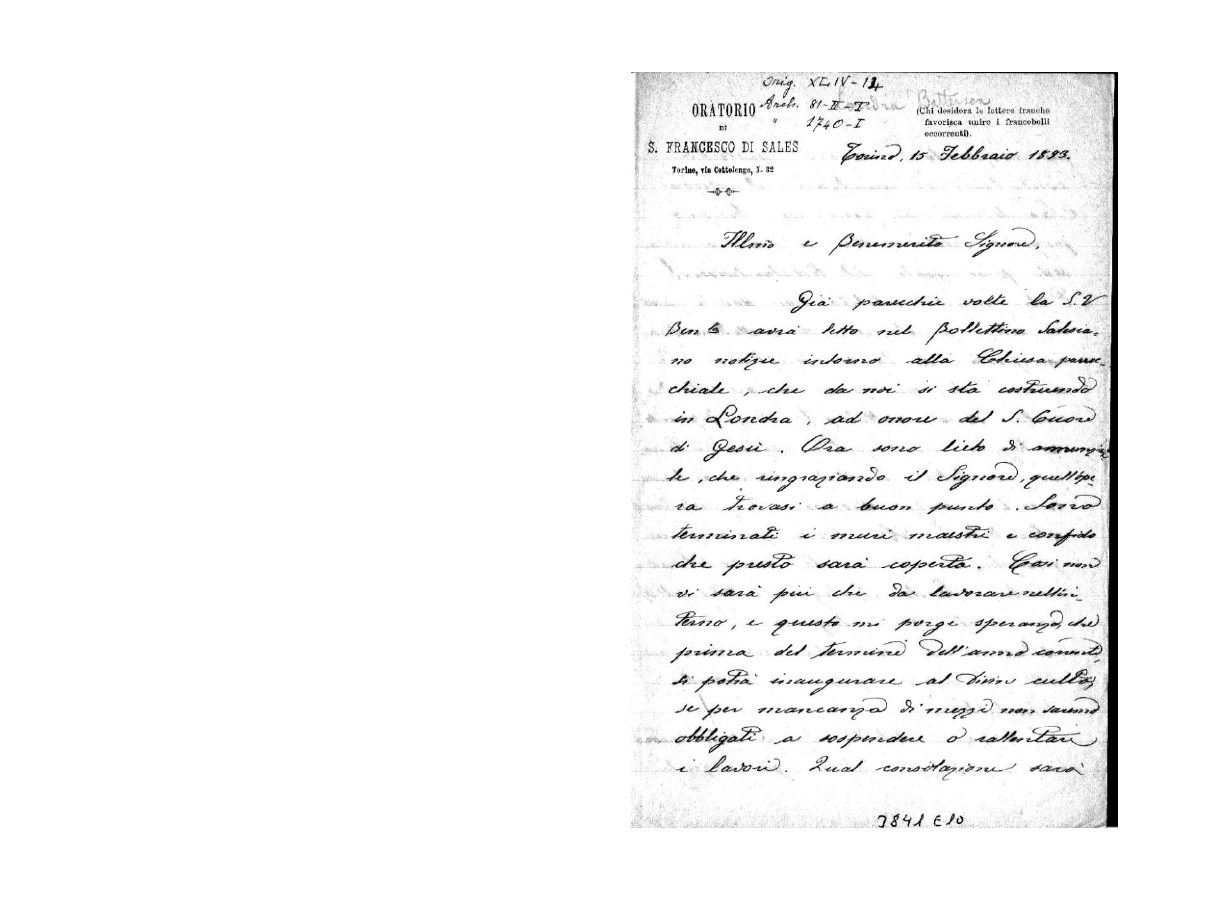 Orig. XLIV-14
Londra Battersea
Arch. 81-II-I
" 1740-I
ORATORIO
DI
S. FRANCESCO DI SALES
Torino, via Cottolengo, N. 32
(Chi desidera le lettere franche
favorisca unire i francobolli
occorrenti).
Torino, 15 Febbraio 1893.
Illmo e Benemerito Signore,
Già parecchie volte la S.V
Ben.ta avrà letto nel Bollettino Salesia-
no notizie intorno alla Chiesa parroc-
chiale, che da noi si sta costruendo
in Londra, ad onore del S. Cuore
di Gesù. Ora sono lieto di annunziar-
le, che ringraziando il Signore, quell'ope-
ra trovasi a buon punto. Sono
terminati i muri maestri e confido
che presto sarà coperta. Così non
vi sarà più che da lavorare nell'in-
terno, e questo mi porge speranza, che
prima del termine dell'anno corrente
si potrà inaugurare al Divin culto,
se per mancanza di mezzi non saremo
obbligati a sospendere o rallentare
i lavori. Qual consolazione sarà
3841 E10